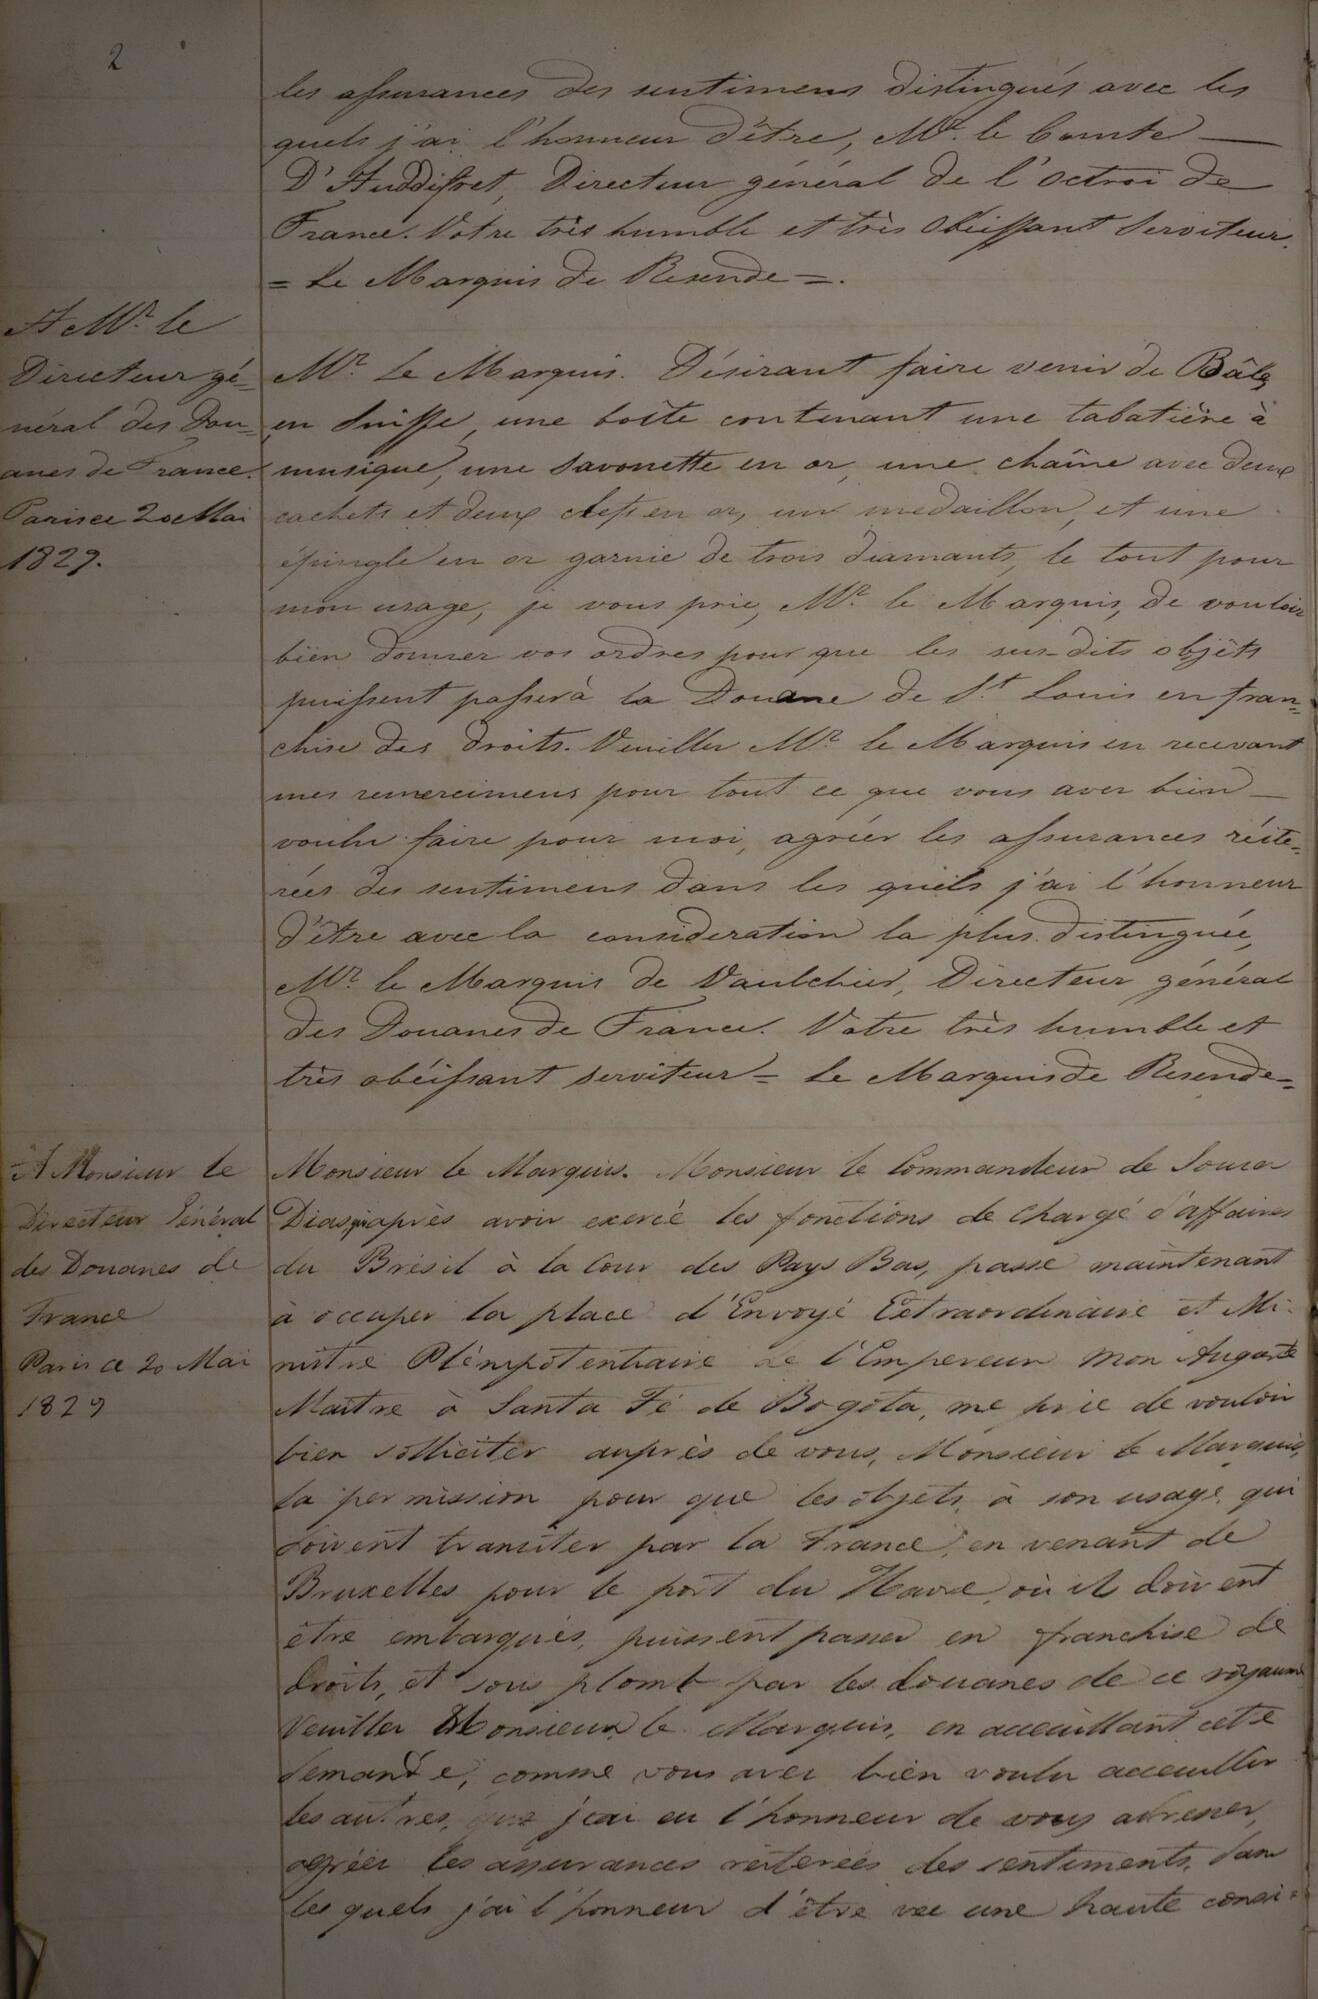 2
les assurances des sentimens distingués avec les
quels j'ai l'honneur d'être, Mr. le Comte
D'Auddifret, Directeur général de l'octroi de
France. Votre très humble et très Obéissant Serviteur.
= Le Marquis de Resende =.
A Mr. le
Directeur gé-
néral des Dou-
anes de France.
Paris ce 20 Mai
1829.
Mr. Le Marquis. Désirant faire venir de Bâle
en Suisse, une boîte contenant une tabatière à
musique, une savonette en or, une chaîne avec deux
cachets et deux clefs en or, un medaillon, et une
épingle en or garnie de trois diamants, le tout pour
mon usage, je vous prie, Mr. le Marquis, de vouloir
bien donner vos ordres pour que les sus-dits objèts
puissent passer à la Douane de St. Louis en fran-
chise des droits. Veuillez Mr. le Marquis en recevant
mes remercimens pour tout ce que vous avez bien
voulu faire pour moi, agréer les assurances réité-
rées des sentimens dans les quels j'ai l'honneur
d'être avec la consideration la plus distinguée,
Mr. le Marquis de Vaulchier, Directeur général
des Douanes de France. Votre très humble et
très obéissant serviteur = Le Marquis de Resende =
A Monsieur le
Directeur Général
des Douanes de
France
Paris ce 20 Mai
1829
Monsieur le Marquis. Monsieur le Commandeur de Souza
Dias après avoir exercé les fonctions de Chargé d'affaires
du Brésil à la Cour des Pays Bas, passe maintenant
à occuper la place d'Envoyé Extraordinaire et Mi-
nistre Plénipotentiaire de l'Empereur Mon Auguste
Maître à Santa Fé de Bogóta, me prie de vouloir
bien solliciter auprès de vous, Monsieur le Marquis,
la permission pour que les objets à son usage, qui
doivent transiter par la France, en venant de
Bruxelles pour le port du Havre, où ils doivent
être embarqués, puissent passer en franchise de
droits, et sous plomb par les douanes de ce royaume
Veuillez Monsieur le Marquis, en accuillant cette
demande, comme vous avez bien voulu accuillir
les autres, que j'ai eu l'honneur de vous adresser,
agréer les assurances reiterées des sentiments, dans
les quels j'ai l'honneur d'être vec une haute consi-